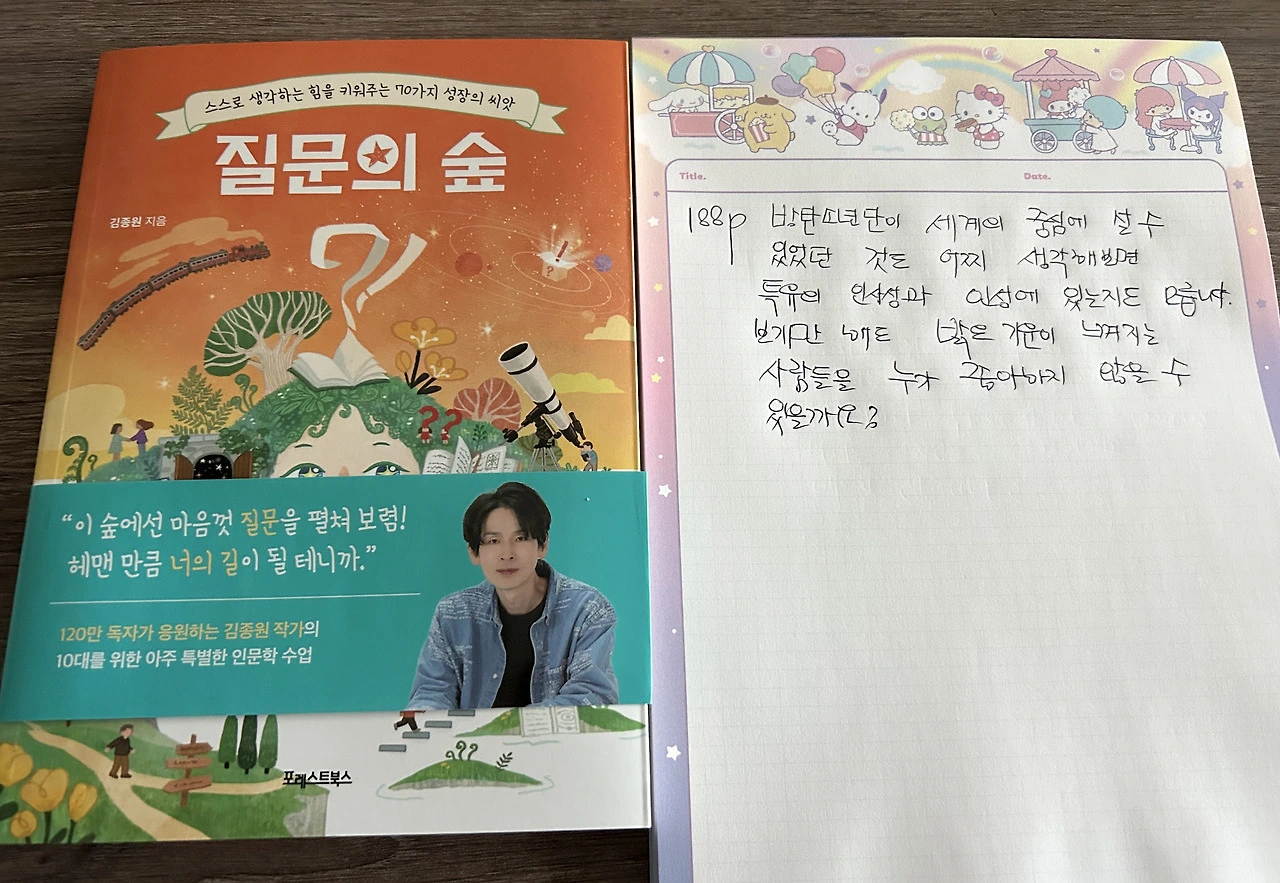 스스로 생각하는 힘을 키워주는 70가지 성장의 씨앗
질문의 숲
김종원 지음
“이 숲에선 마음껏 질문을 펼쳐 보렴!
헤맨 만큼 너의 길이 될 테니까.”
120만 독자가 응원하는 김종원 작가의
10대를 위한 아주 특별한 인문학 수업
포레스트북스
Title.
Date.
188p 방탄소년단이 세계의 중심에 설 수
있었단 것도 어찌 생각해보면
특유의 인사성과 인성에 있는지도 모릅니다.
보기만 해도 밝은 기운이 느껴지는
사람들을 누가 좋아하지 않을 수
있을까요?